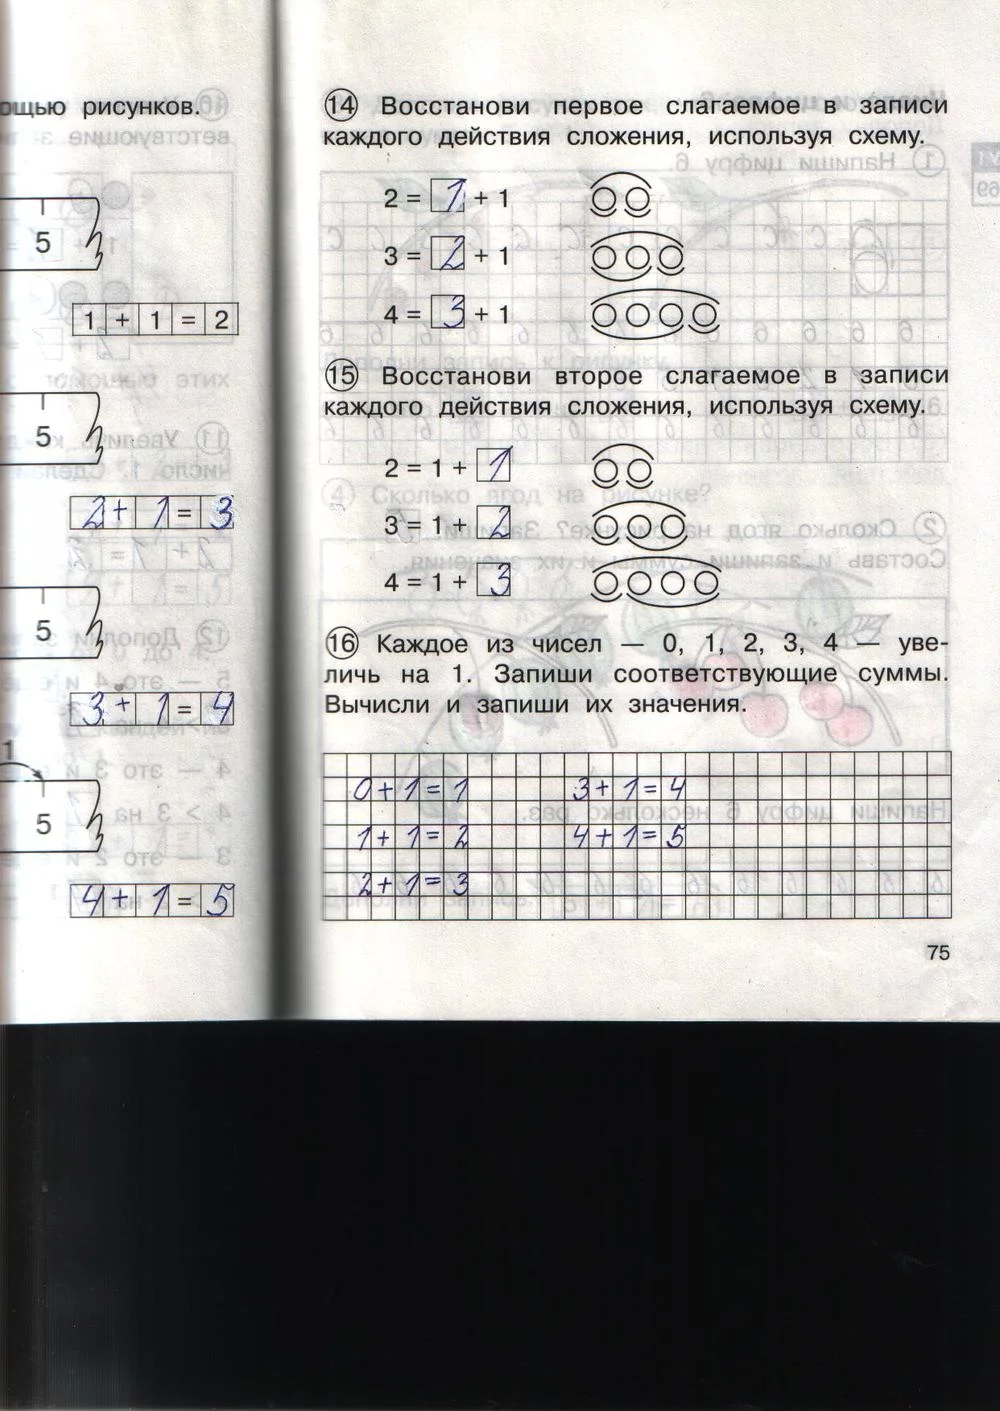 ощью рисунков.
5
1 + 1 = 2
5
2 + 1 = 3
5
3 + 1 = 4
1
5
4 + 1 = 5
14 Восстанови первое слагаемое в записи
каждого действия сложения, используя схему.
2 = 1 + 1
3 = 2 + 1
4 = 3 + 1
15 Восстанови второе слагаемое в записи
каждого действия сложения, используя схему.
2 = 1 + 1
3 = 1 + 2
4 = 1 + 3
16 Каждое из чисел — 0, 1, 2, 3, 4 — уве-
личь на 1. Запиши соответствующие суммы.
Вычисли и запиши их значения.
0 + 1 = 1 3 + 1 = 4
1 + 1 = 2 4 + 1 = 5
2 + 1 = 3
75